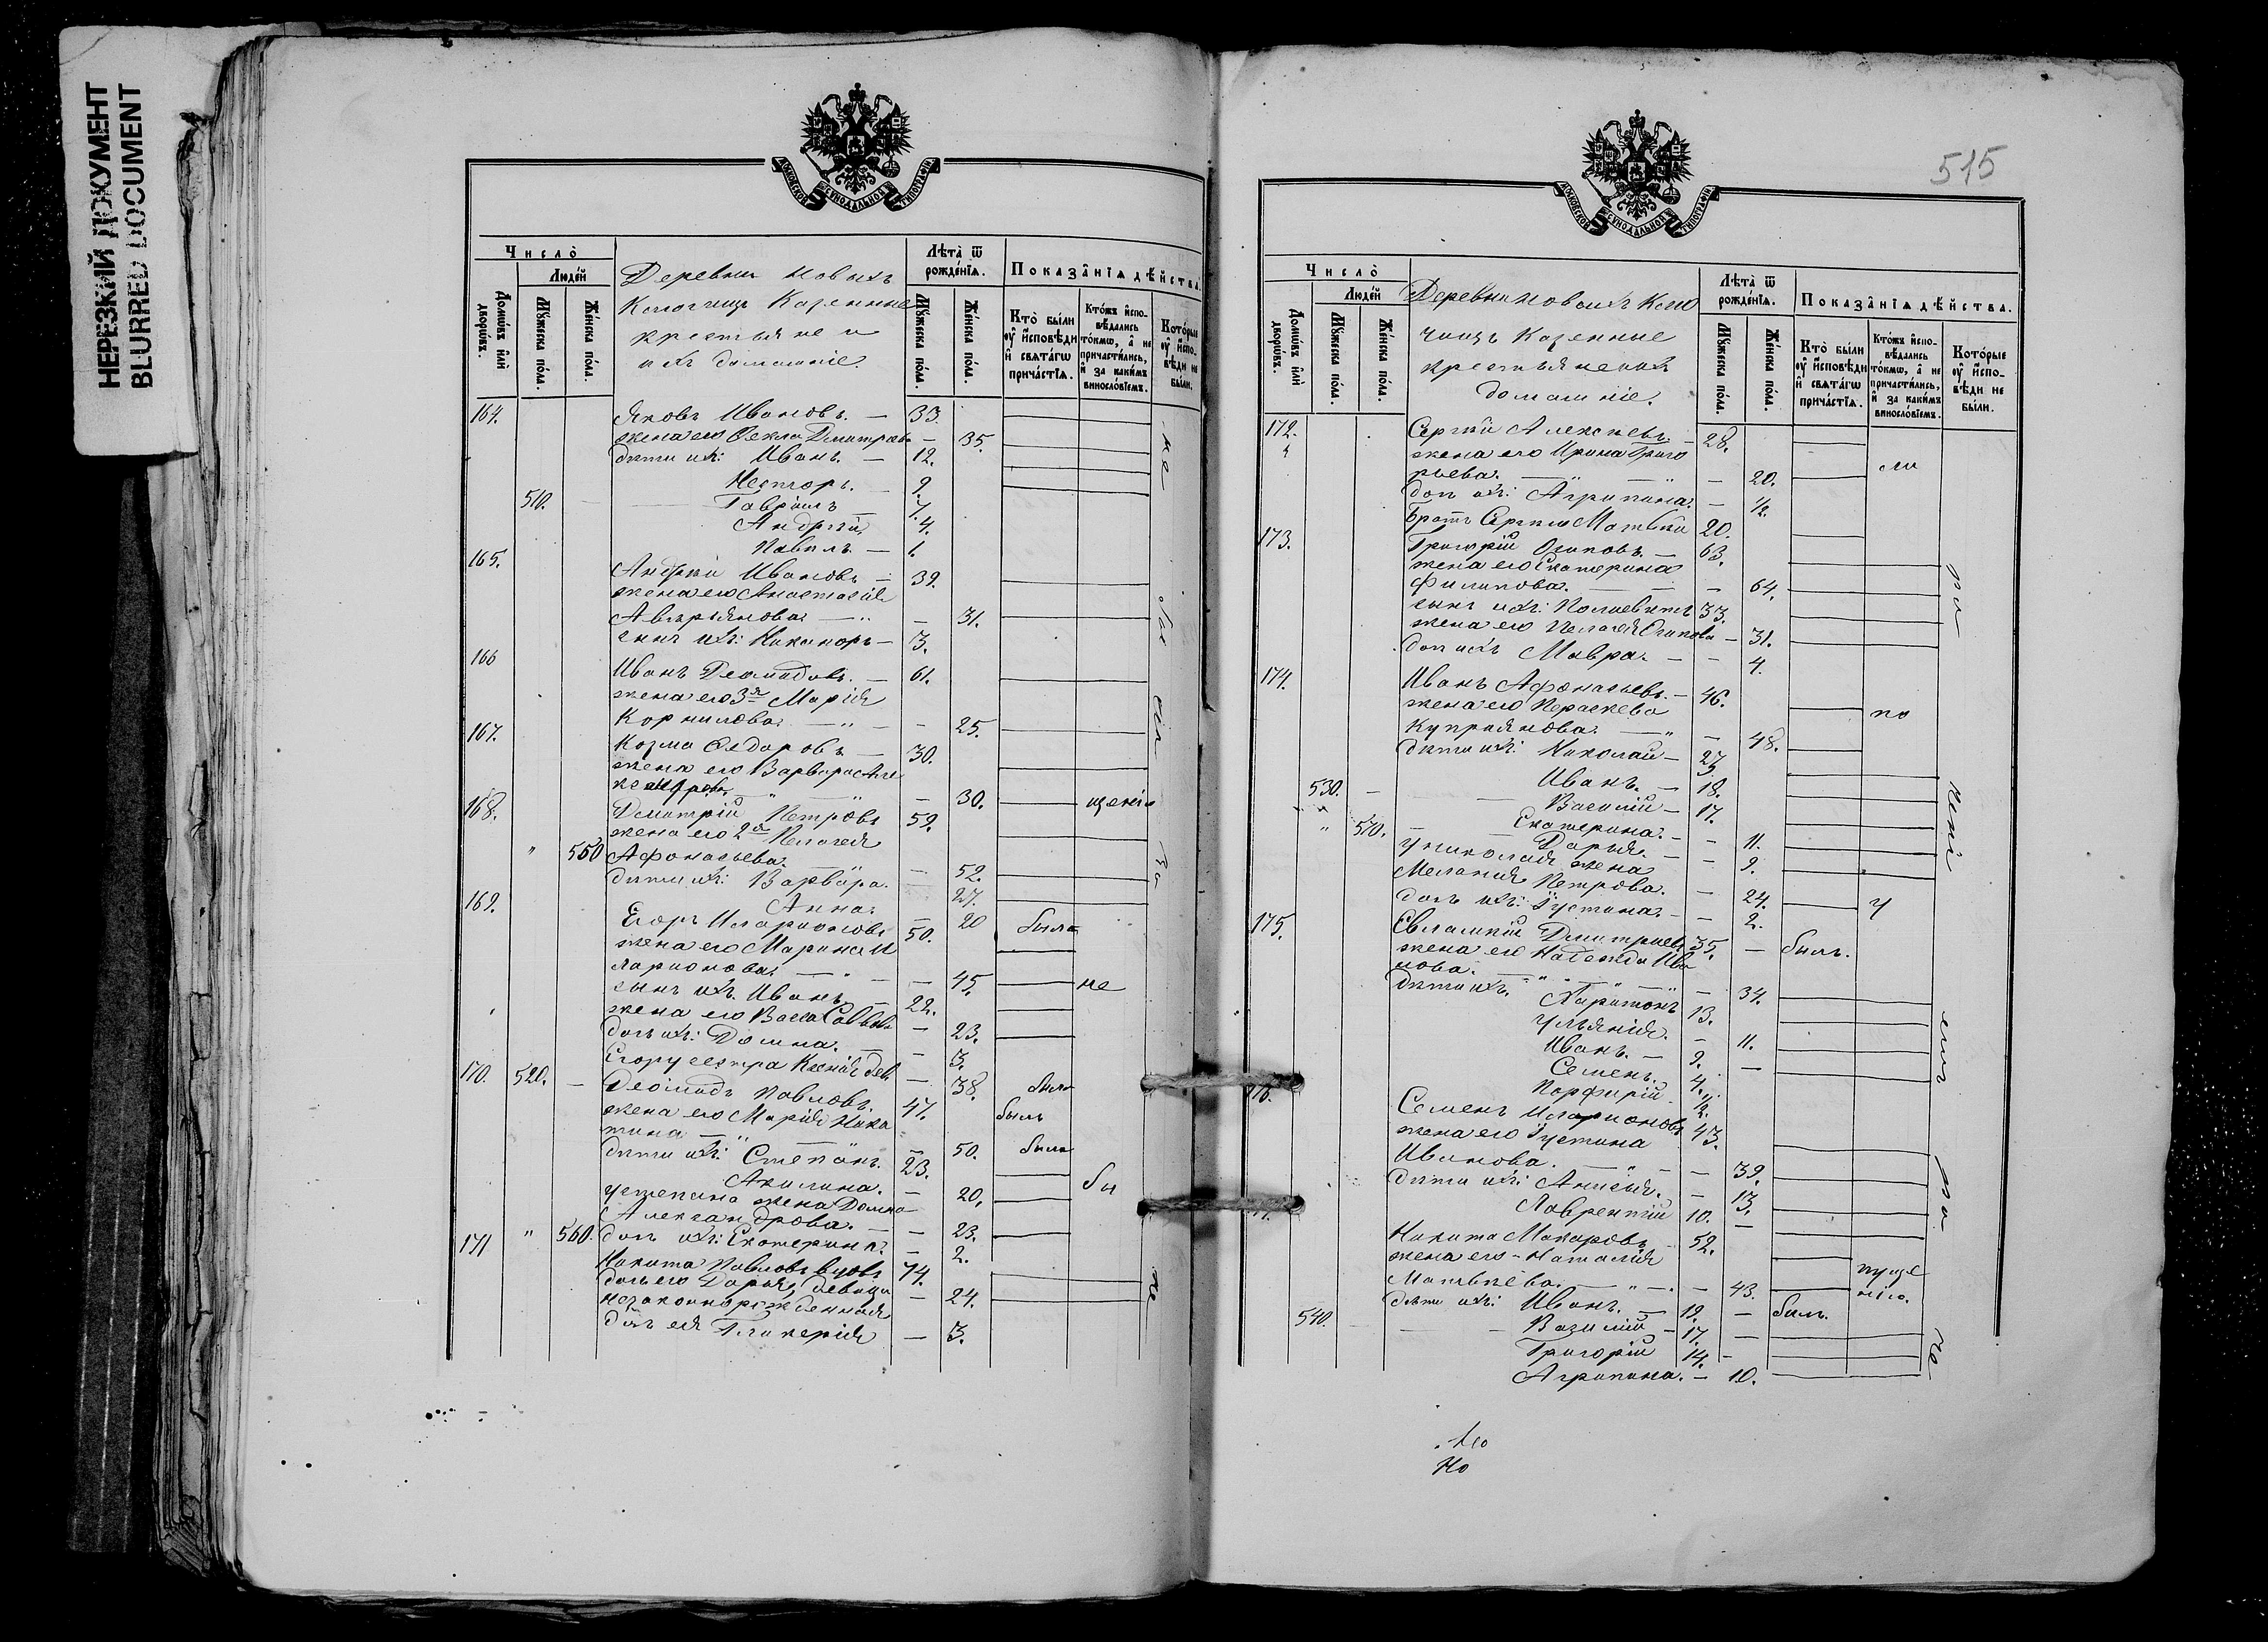 НЕРЕЗКИЙ ДОКУМЕНТ
BLURRED DOCUMENT
МОСКОВСКОЙ СѴНОДАЛЬНОЙ ТИПОГРАФІИ
Число̀
Людей
Домѡвъ или дворѡвъ.
Мꙋжеска пола.
Женска пола.
Деревни Новыхъ
Казенные
крестьяне и
ихъ домашніе.
Лѣта ѿ рожденїѧ.
Мꙋжеска пола.
Женска пола.
Показанїѧ дѣйства.
Кто были ᲂу исповѣди и свѧтагѡ причастїѧ.
Ктожъ исповѣдались токмѡ, а не причастились, и за какимъ винословїемъ.
Которые ᲂу исповѣди не были.
164. Яковъ Ивановъ. — 33.
жена его Ѳекла Дмитрова — 35.
дѣти ихъ: Иванъ. — 12.
Несторъ. 9.
510. Гавріилъ — 7.
Андрей 4.
Павелъ — 1.
165. Андрей Ивановъ — 39.
жена его Анастасія
Аверьянова — 31.
сынъ ихъ: Никаноръ — 3.
166 Иванъ Деомидовъ. — 61.
жена его 3я Марія
Корнилова — 25.
167. Козма Ѳедоровъ — 30.
жена его Варвара Але
ксандрова — 30.
168. Дмитрій Петровъ 59.
жена его 2я Пелагея
" 550 Афонасьева. — 52.
дѣти ихъ: Варвара. — 27.
Анна. — 20 была
169. Егоръ Иларіоновъ 50.
жена его Марина И
ларионова — 45. не
сынъ ихъ. Иванъ — 22.
жена его Васса Саввова — 23.
дочь ихъ: Домна. — 3.
Егору сестра Ксенія дев. — 38. была
170. 520. — Деомидъ Павловъ. 47. былъ
жена его Марія Ники
тина — 50. была
дѣти ихъ: Степанъ. 23.
Акилина. — 20. бы
У Степана жена Домна
Александрова. — 23.
171 " 560. дочь ихъ: Екатерина. — 2.
Никита Павловъ вдовъ 74.
дочь его Дарья, девица — 24.
незаконнорожденная
дочь ея Гликерія — 3.
515
МОСКОВСКОЙ СѴНОДАЛЬНОЙ ТИПОГРАФІИ
Число̀
Людей
Домѡвъ или дворѡвъ.
Мꙋжеска пола.
Женска пола.
Деревни Новыхъ
Казенные
крестьяне ихъ
домашніе.
Лѣта ѿ рожденїѧ.
Мꙋжеска пола.
Женска пола.
Показанїѧ дѣйства.
Кто были ᲂу исповѣди и свѧтагѡ причастїѧ.
Ктожъ исповѣдались токмѡ, а не причастились, и за какимъ винословїемъ.
Которые ᲂу исповѣди не были.
172. Сергѣй Алексѣевъ — 28.
жена его Ирина Григо
рьева. — 20.
дочь ихъ: Агрипина. — 1/2.
Братъ Сергѣя Матвѣй 20.
173. Григорій Осиповъ. — 63.
жена его Екатерина
Филипова. — 64.
сынъ ихъ: Полиевктъ 33.
жена его Пелагея Осипова — 31.
дочь ихъ Мавра. — 4.
174. Иванъ Афонасьевъ. — 46.
жена его Параскева по
Куприянова. — 48.
дѣти ихъ: Николай — 27
530. Иванъ. — 18.
Василій — 17.
" 570. Екатерина. — 11.
Дарья. — 9.
У Николая жена
Мелания Петрова. — 24.
дочь ихъ: Густина. — 2.
175. Евлампій Дмитриевъ 35. — былъ.
жена его Надежда Ива
нова. — 34.
дѣти ихъ. Харитонъ 13.
Ульянія. — 11.
Иванъ. — 9.
Семенъ. 4.
Порфирій 1/2.
176. Семенъ Иларионовъ 43.
жена его Густина
Иванова. — 39.
дѣти ихъ: Анисья. — 13.
Лаврентій 10. —
Никита Макаровъ — 52.
жена его Наталія
Матвѣева. — 43.
дѣти ихъ: Иванъ. — 19. — былъ.
540. Василій — 17. —
Григорій 14. —
Агрипина. — 10.